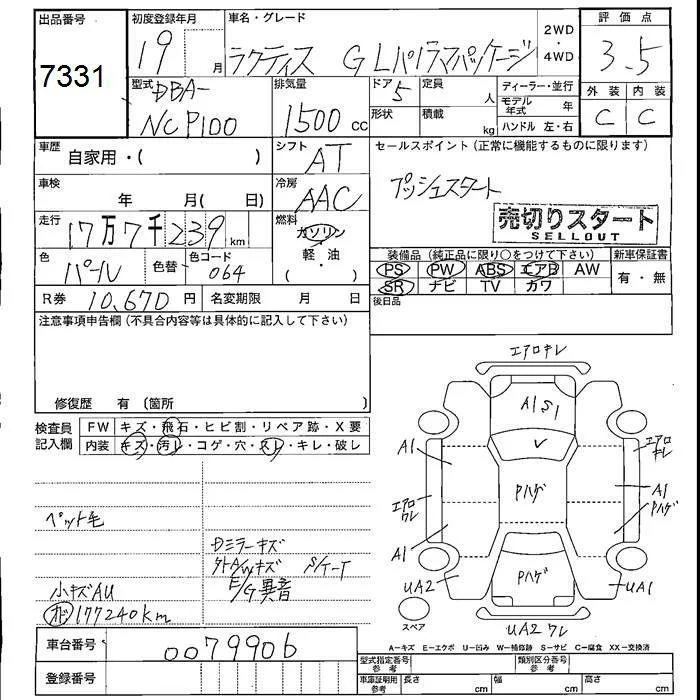 出品番号
7331
初度登録年月
19 月
車名・グレード
ラクティス G Lパノラマパッケージ
2WD
・
4WD
評価点
3.5
外装 内装
C C
型式
DBA-
NCP100
排気量
1500 cc
ドア 5
形状
定員 人
積載 kg
ディーラー・並行
モデル年式 年
ハンドル 左・右
車歴
自家用・( )
シフト
AT
セールスポイント (正常に機能するものに限ります)
プッシュスタート
売切りスタート
SELLOUT
車検
年 月( 日)
冷房
AAC
走行
17万7千239km
燃料
ガソリン
軽・油
( )
色
パール
色替
色コード
064
装備品 (純正品に限り○をつけて下さい)
新車保証書
PS PW ABS エアB AW
有・無
SR ナビ TV カワ
R券 10,670円
名変期限 月 日
後日品
注意事項申告欄 (不具合内容等は具体的に記入して下さい)
修復歴 有 〔箇所 〕
検査員
記入欄
FW キズ・飛石・ヒビ割・リペア跡・X要
内装 キズ・汚レ・コゲ・穴・スレ・キレ・破レ
ペット毛
Dミラーキズ
外A/Wキズ
E/G異音
小キズAU
177240km
エアロキレ
A1 S1
A1
エアロ
キレ
Pハゲ
A1
Pハゲ
エアロ
ワレ
A1
Pハゲ
UA2
UA1
スペア
UA2 ワレ
車台番号
0079906
登録番号
A―キズ E―エクボ U―凹み W―補修跡 S―サビ C―腐食 XX―交換済
型式指定番号
参考
類別区分番号
参考
車庫証明用
参考
長さ cm
幅 cm
高さ cm